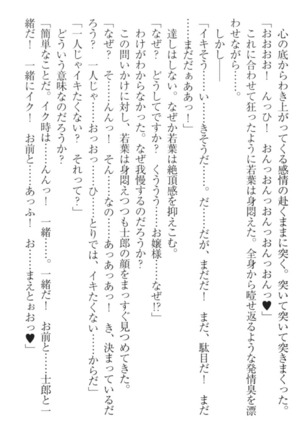 心の底からわき上がってくる感情の赴くままに突く。突いて突いて突いて突きまくった。
「おおおお！　おんっおんっおんっおんっ♥」
これに合わせて狂ったように若葉は身悶えた。全身から噎せ返るような発情臭を漂
わせながら……。
しかし――
「イキそう……い……きそうだ……。だ……だが、まだだ！　まだ、駄目だ！　まだ
……まだだぁああっ！」
達しはしない。なぜか若葉は絶頂感を抑えこむ。
「なぜ？　どうしてですか？　くううう……お嬢様……なぜ!?」
わけがわからなかった。なぜ我慢するのだろうか？
この問いかけに対し、若葉は身悶えつつも士郎の顔をまっすぐ見つめてきた。
「なぜ？　そ……んんっ！　そん……なの……あっあっあっ！　き、決まっているだ
ろう？　一人じゃ……おっおっ……ひ……とりでは、イキたくない……からだ」
「一人じゃイキたくない？　それって？」
どういう意味なのだろうか？
「簡単なことだ。イク時は……んんっ！　一緒……。一緒だ！　お前と……士郎と一
緒だ！　一緒にイク！　お前と……あっふ！　お……まえとぉおっ♥」